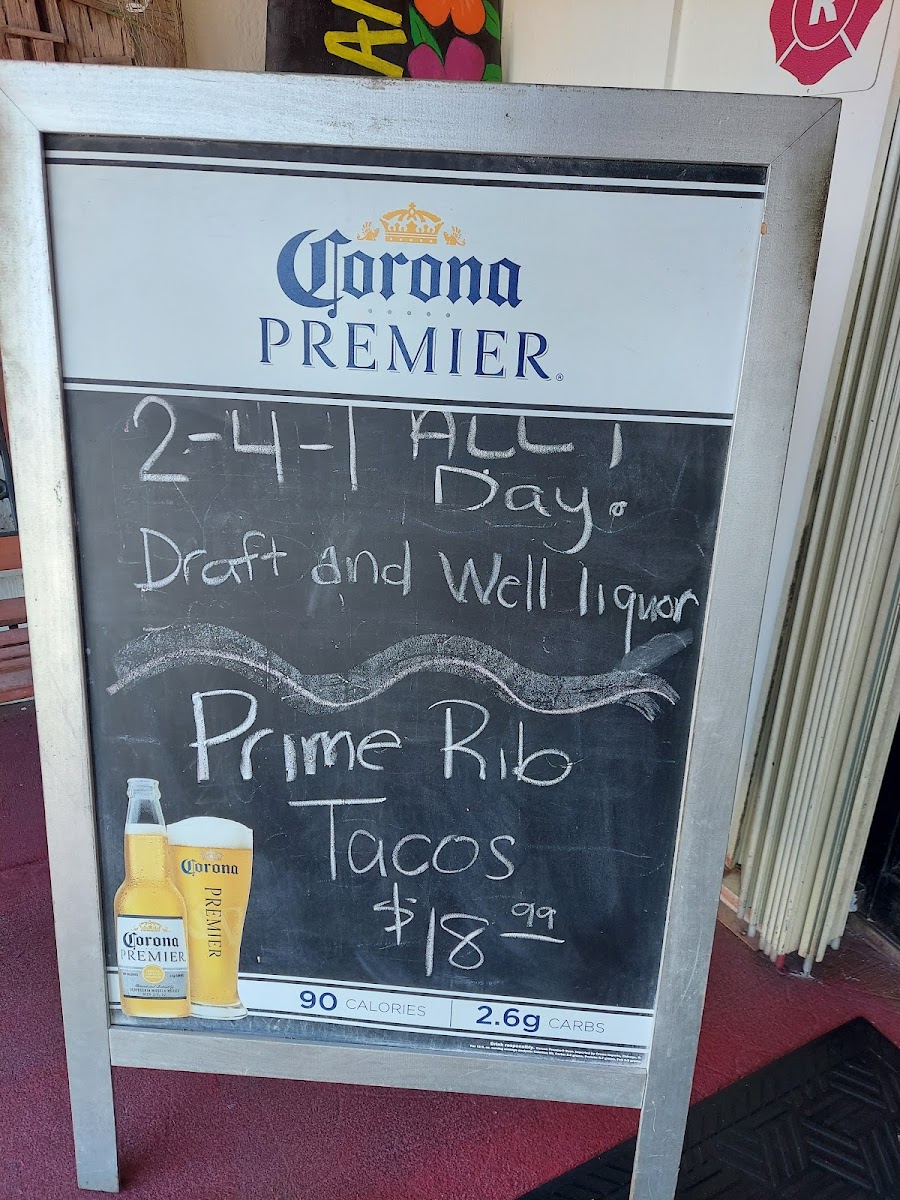 R
Corona
PREMIER®
2-4-1 ALL
Day!
Draft and Well liquor
Prime Rib
Tacos
$18 99
Corona
PREMIER
Corona
PREMIER
90 CALORIES 2.6g CARBS
Drink responsibly.